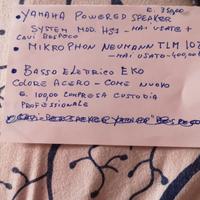 E. 350,00
• YAMAHA POWERED SPEAKER
SYSTEM MOD. HS5 - MAI USATE +
CAVI
• MIKROPHON NEUMANN TLM 102
- MAI USATO - 400,00
• BASSO ELETRICO EKO
COLORE ACERO - COME NUOVO
E. 100,00 COMPRESA CUSTODIA
PROFESSIONALE